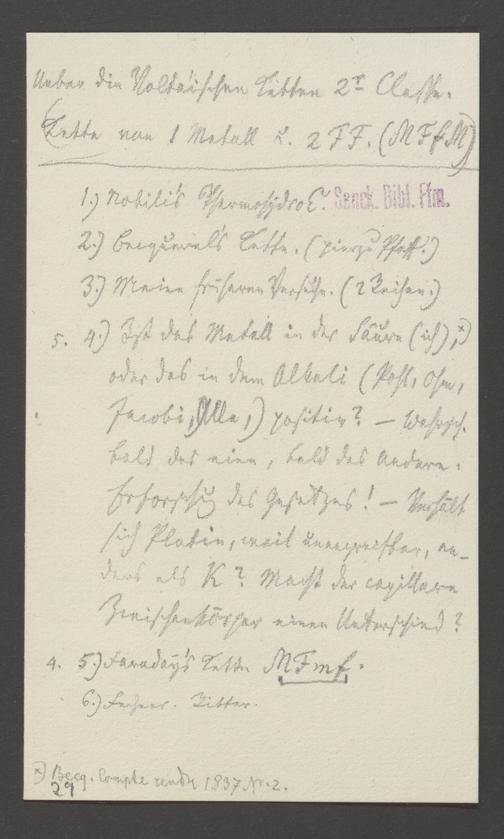 Ueber die Voltaischen Ketten 2r Classe.
(Kette von 1 Metall u. 2 FF. (MFfM)
1.) Nobili's ThermohydroE. Senck. Bibl. Ffm.
2.) Becquerel's Kette. (hierzu Pfaff.)
3.) Meine früheren Versuche. (2 Reihen.)
5. 4.) Ist das Metall in der Säure (ich),x)
oder das in dem Alkali (Pohl, Ohm,
Jacobi, Alle,) positiv? – Wahrsch.
bald das eine, bald das andere.
Erforschg des Gesetzes! – Verhält
sich Platin, weil unangreifbar, an-
ders als K? Macht der capillare
Zwischenkörper einen Unterschied?
4. 5.) Faraday's Kette MFmf.
6.) Fechner. Ritter.
x) Becq. Compte rendu 1837 Nr. 2.
29